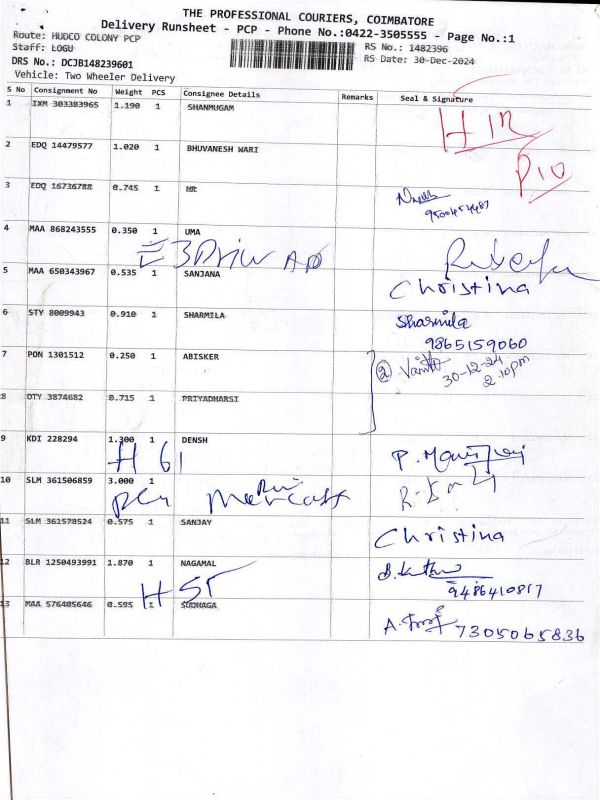 THE PROFESSIONAL COURIERS, COIMBATORE
Delivery Runsheet - PCP - Phone No.:0422-3505555 - Page No.:1
Route: HUDCO COLONY PCP
Staff: LOGU
RS No.: 1482396
DRS No.: DCJB148239601
RS Date: 30-Dec-2024
Vehicle: Two Wheeler Delivery
S No Consignment No Weight PCS Consignee Details Remarks Seal & Signature
1 IXM 303383965 1.190 1 SHANMUGAM
2 EDQ 14479577 1.020 1 BHUVANESH WARI
3 EDQ 16736788 0.745 1 MR
4 MAA 868243555 0.350 1 UMA
5 MAA 650343967 0.535 1 SANJANA Christina
6 STY 8009943 0.910 1 SHARMILA Sharmila
9865159060
7 PON 1301512 0.250 1 ABISKER 2
30-12-24
2.10pm
8 OTY 3874682 0.715 1 PRIYADHARSI
9 KDI 228294 1.300 1 DENSH
H 61
10 SLM 361506859 3.000 1
11 SLM 361578524 0.575 1 SANJAY Christina
12 BLR 1250493991 1.870 1 NAGAMAL
9486410817
13 MAA 576405646 0.595 1 SUDHAGA
7305065836